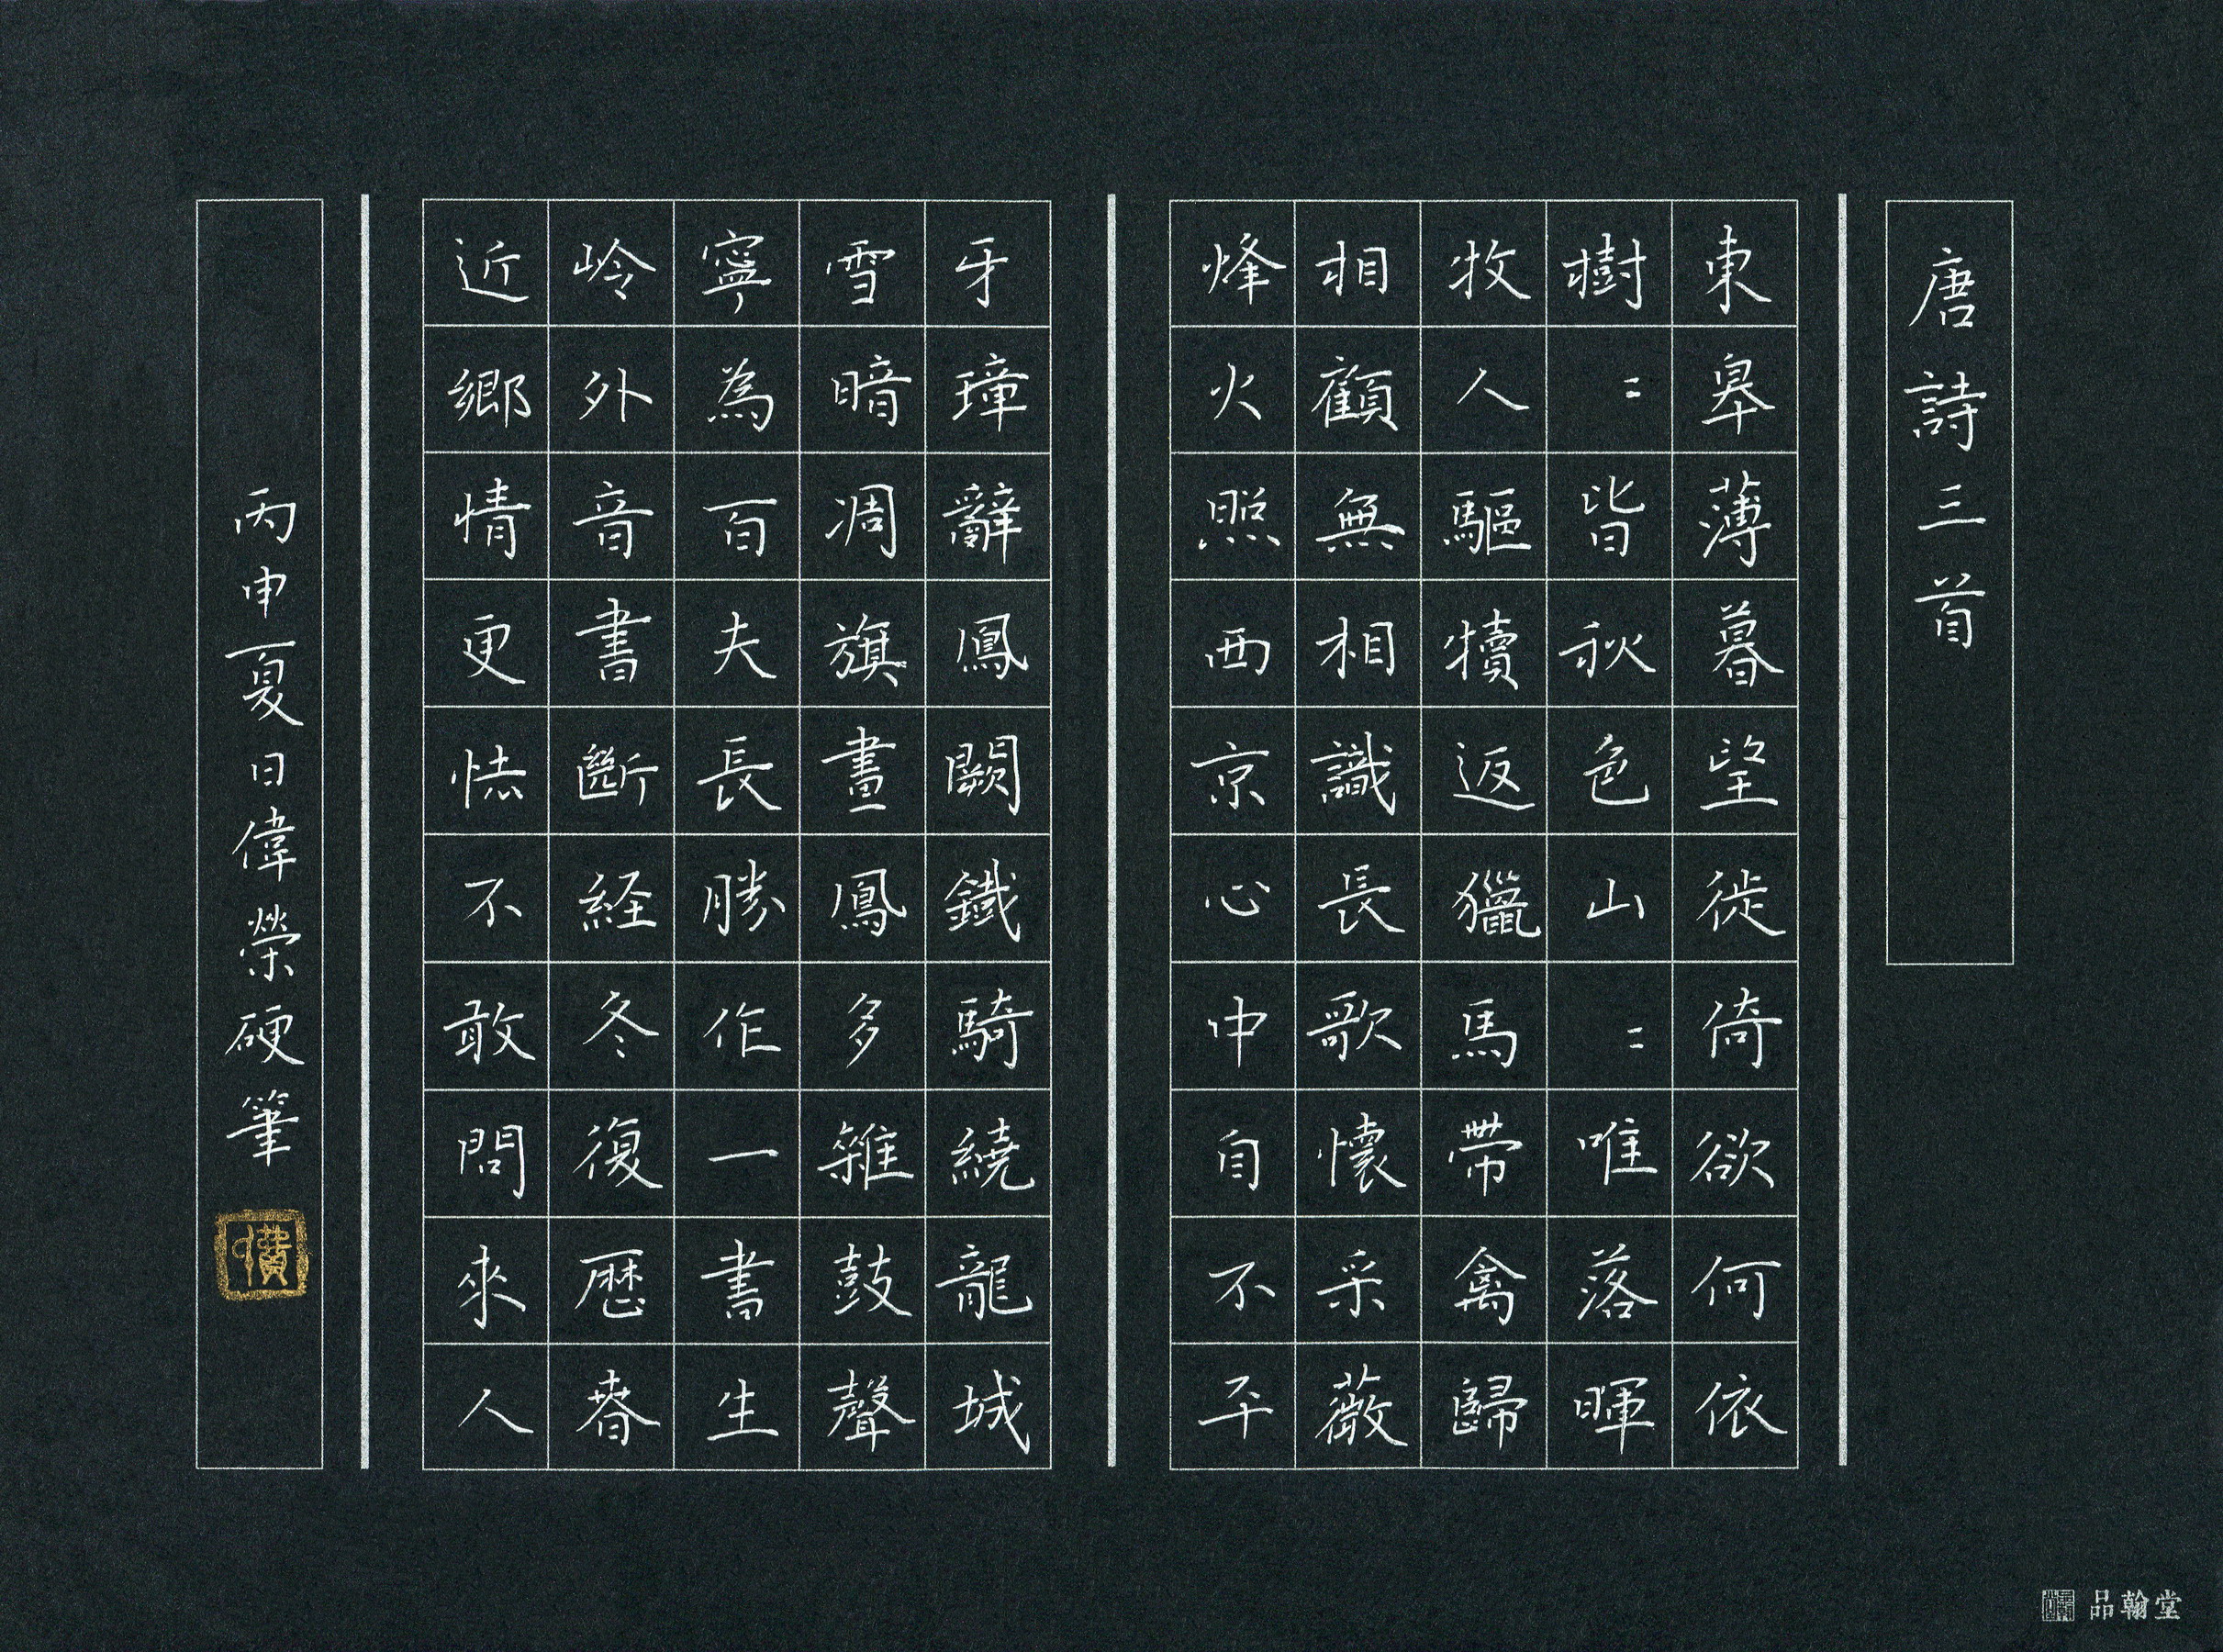 唐詩三首
東皋薄暮望徙倚欲何依
樹〻皆秋色山〻唯落暉
牧人驅犢返獵馬帶禽歸
相顧無相識長歌懷采薇
烽火照西京心中自不平
牙璋辭鳳闕鐵騎繞龍城
雪暗凋旗畫鳳多雜鼓聲
寧為百夫長勝作一書生
岭外音書斷経冬復歷春
近鄉情更怯不敢問來人
丙申夏日偉榮硬筆
品翰堂